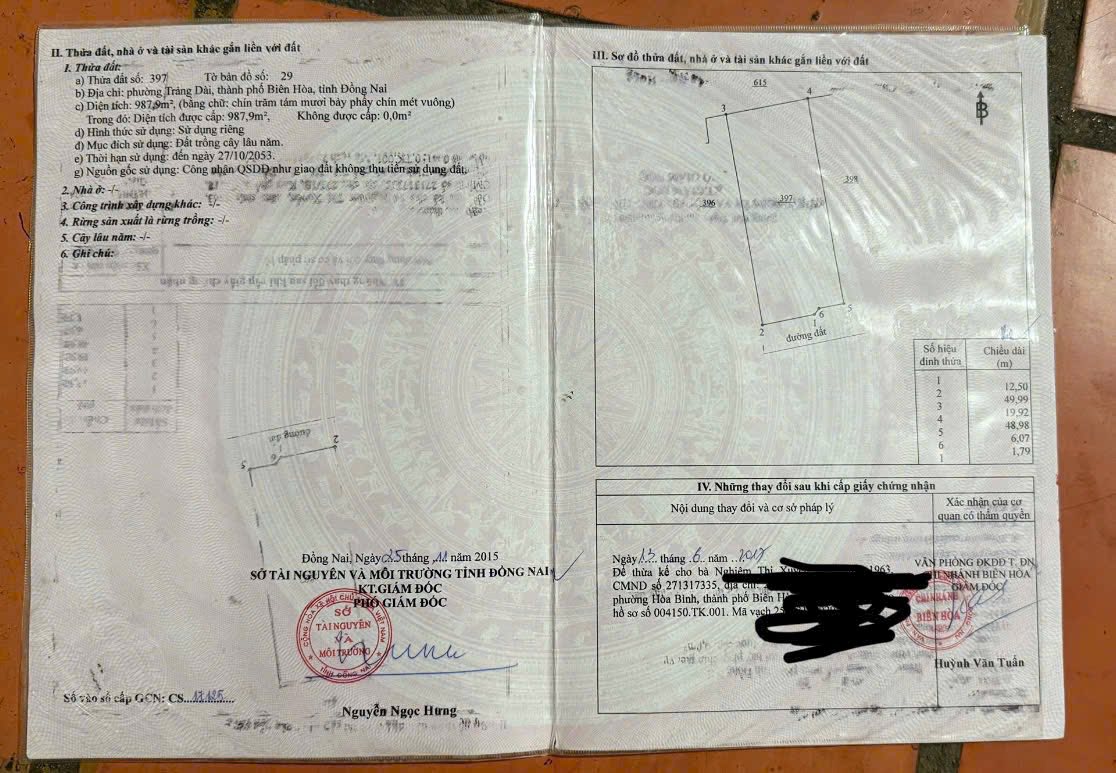 II. Thửa đất, nhà ở và tài sản khác gắn liền với đất
1. Thửa đất:
a) Thửa đất số: 397 Tờ bản đồ số: 29
b) Địa chỉ: phường Trảng Dài, thành phố Biên Hòa, tỉnh Đồng Nai
c) Diện tích: 987,9m², (bằng chữ: chín trăm tám mươi bảy phẩy chín mét vuông)
Trong đó: Diện tích được cấp: 987,9m², Không được cấp: 0,0m²
d) Hình thức sử dụng: Sử dụng riêng
đ) Mục đích sử dụng: Đất trồng cây lâu năm.
e) Thời hạn sử dụng: đến ngày 27/10/2053.
g) Nguồn gốc sử dụng: Công nhận QSDĐ như giao đất không thu tiền sử dụng đất.
2. Nhà ở: -/-
3. Công trình xây dựng khác: -/-
4. Rừng sản xuất là rừng trồng: -/-
5. Cây lâu năm: -/-
6. Ghi chú:
Đồng Nai, Ngày 25 tháng 11 năm 2015
SỞ TÀI NGUYÊN VÀ MÔI TRƯỜNG TỈNH ĐỒNG NAI
KT.GIÁM ĐỐC
PHÓ GIÁM ĐỐC
SỞ
TÀI NGUYÊN
VÀ
MÔI TRƯỜNG
Số vào sổ cấp GCN: CS
Nguyễn Ngọc Hưng
III. Sơ đồ thửa đất, nhà ở và tài sản khác gắn liền với đất
615
3
4
B
398
396
397
2
1
6
5
đường đất
Số hiệu đỉnh thửa
Chiều dài (m)
1
12,50
2
49,99
3
19,92
4
48,98
5
6,07
6
1,79
1
IV. Những thay đổi sau khi cấp giấy chứng nhận
Nội dung thay đổi và cơ sở pháp lý
Xác nhận của cơ quan có thẩm quyền
Ngày 13 tháng 6 năm 2017
Để thừa kế cho bà Nghiêm Thị 1963,
CMND số 271317335, địa chỉ:
phường Hòa Bình, thành phố Biên
hồ sơ số 004150.TK.001. Mã vạch
VĂN PHÒNG ĐKĐĐ T. ĐN
CHI NHÁNH BIÊN HÒA
GIÁM ĐỐC
CHI NHÁNH
BIÊN HÒA
Huỳnh Văn Tuấn